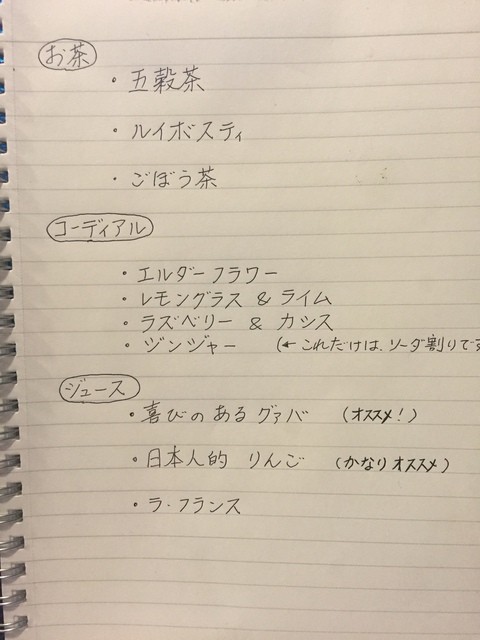 お茶
・五穀茶
・ルイボスティ
・ごぼう茶
コーディアル
・エルダーフラワー
・レモングラス & ライム
・ラズベリー & カシス
・ジンジャー (←これだけは、ソーダ割りです
ジュース
・喜びのあるグァバ (オススメ!)
・日本人的 りんご (かなりオススメ)
・ラ・フランス